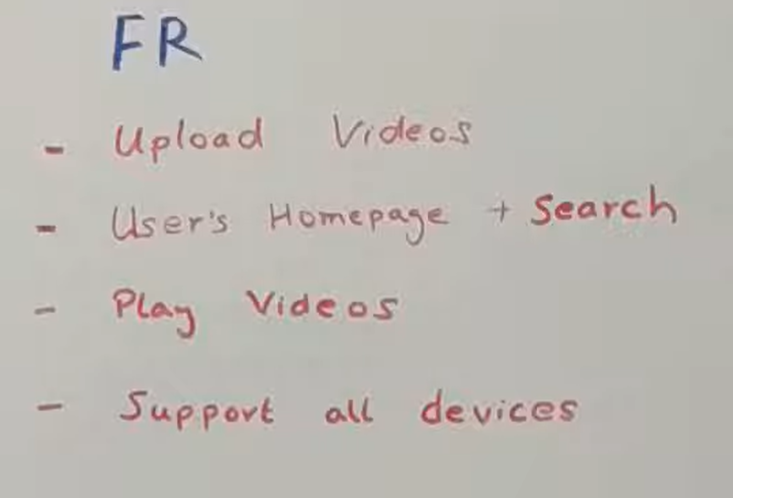 FR
- Upload Videos
- User's Homepage + Search
- Play Videos
- Support all devices